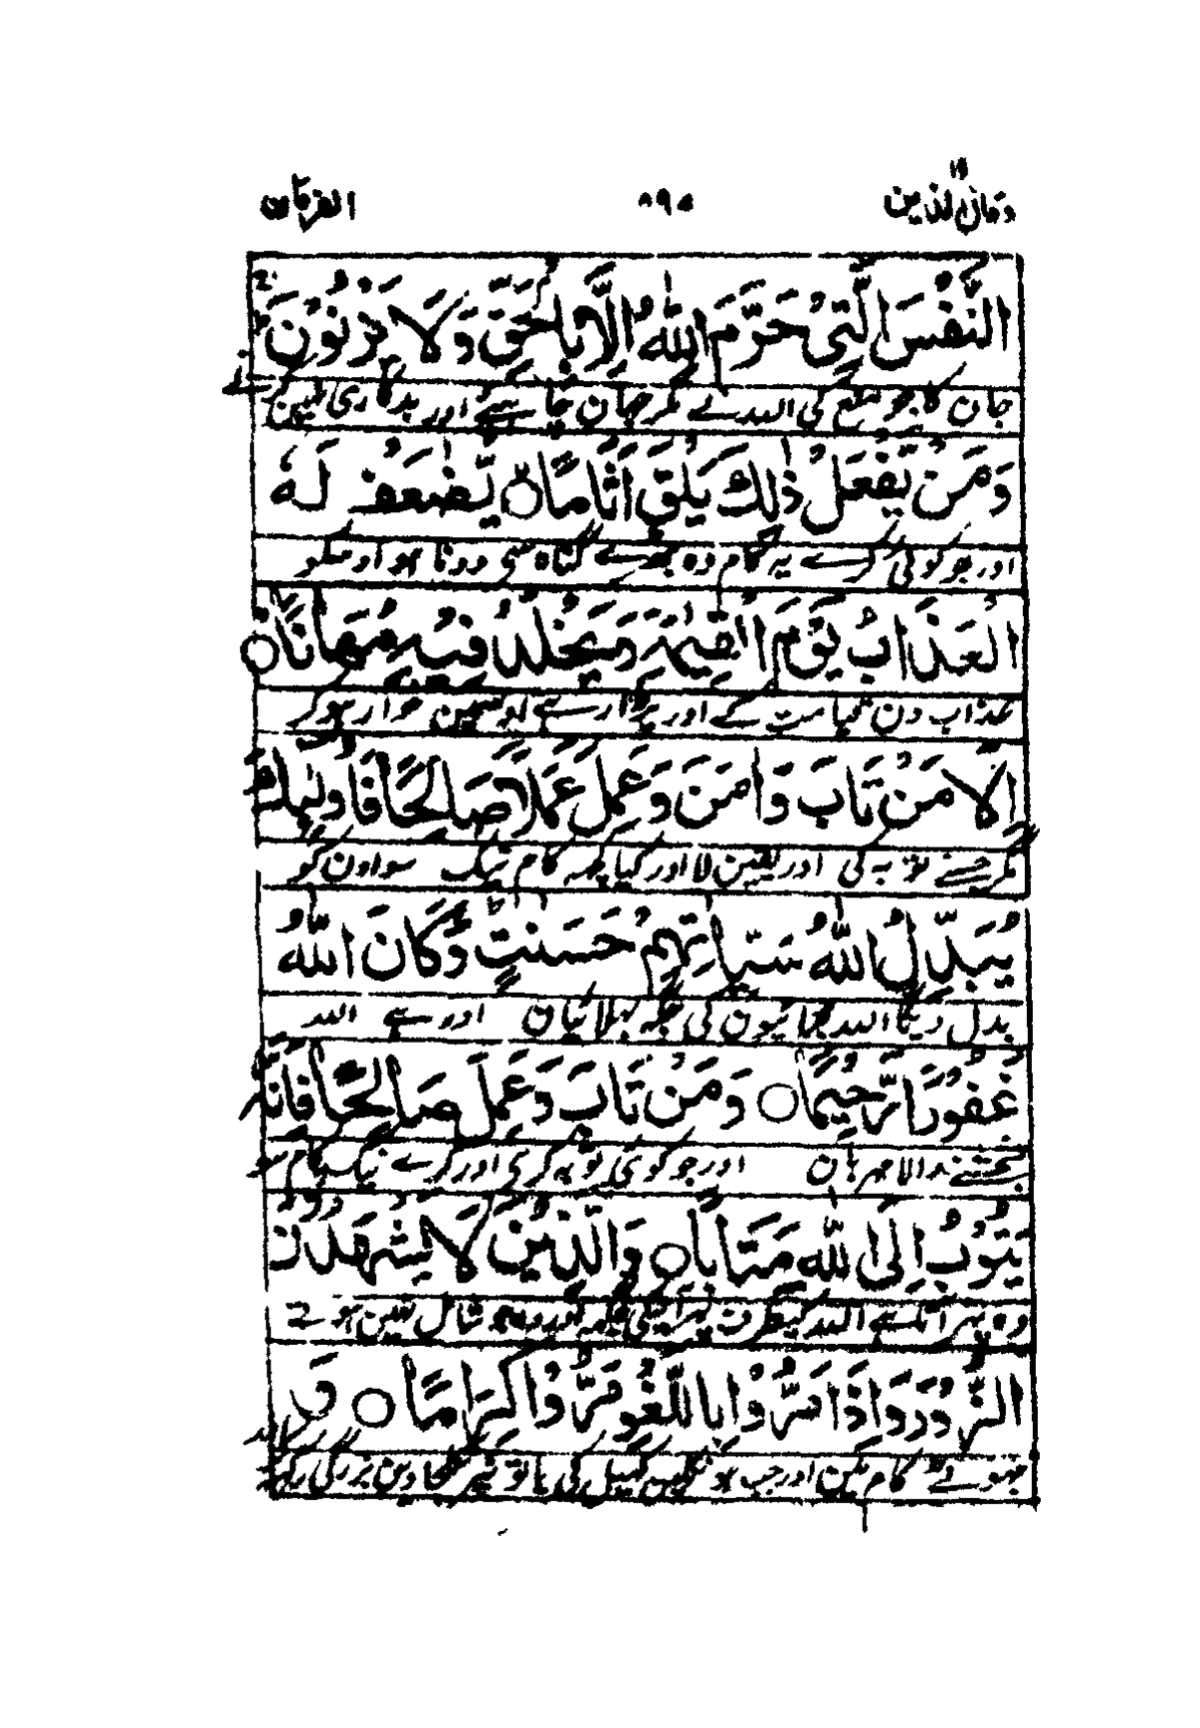 وقال الذین ۱۹ ۸۹۵ الفرقان
النَّفْسَ الَّتِیْ حَرَّمَ اللّٰهُ اِلَّا بِالْحَقِّ وَلَا یَزْنُوْنَ
جان کا جو منع کی اللہ نے مگر جہان چاہیے اور بدکاری نہین کرتے
وَمَنْ یَّفْعَلْ ذٰلِكَ یَلْقَ اَثَامًا ○ یُّضٰعَفْ لَهُ
اور جو کوئی کرے یہ کام وہ بھڑے گناہ سی دونا ہو اوسکو
الْعَذَابُ یَوْمَ الْقِیٰمَةِ وَیَخْلُدْ فِیْهِ مُهَانًا ○
عذاب دن قیامت کے اور پڑا رہے اوسمین خوار ہوکر
اِلَّا مَنْ تَابَ وَاٰمَنَ وَعَمِلَ عَمَلًا صَالِحًا فَاُولٰٓئِكَ
مگر جسنے توبہ کی اور یقین لا اور کیا کچھ کام نیک سو اون کو
یُبَدِّلُ اللّٰهُ سَیِّاٰتِهِمْ حَسَنٰتٍ وَّكَانَ اللّٰهُ
بدل دیگا اللہ برائیون کی جگہ بھلائیان اور ہے اللہ
غَفُوْرًا رَّحِیْمًا ○ وَمَنْ تَابَ وَعَمِلَ صَالِحًا فَاِنَّهٗ
بخشنے والا مہربان اور جو کوئی توبہ کری اور کرے نیک کام سو
یَتُوْبُ اِلَی اللّٰهِ مَتَابًا ○ وَالَّذِیْنَ لَا یَشْهَدُوْنَ
وہ پھر آتا ہے اللہ کیطرف پھر آنیکی جگہ اور وہ جو شامل نہین ہوتے
الزُّوْرَ وَاِذَا مَرُّوْا بِاللَّغْوِ مَرُّوْا كِرَامًا ○ وَ
جھوٹے کام مین اور جب ہو نکلین کھیل کی باتو نپر نکلجاوین بزرگی رکھکر اور